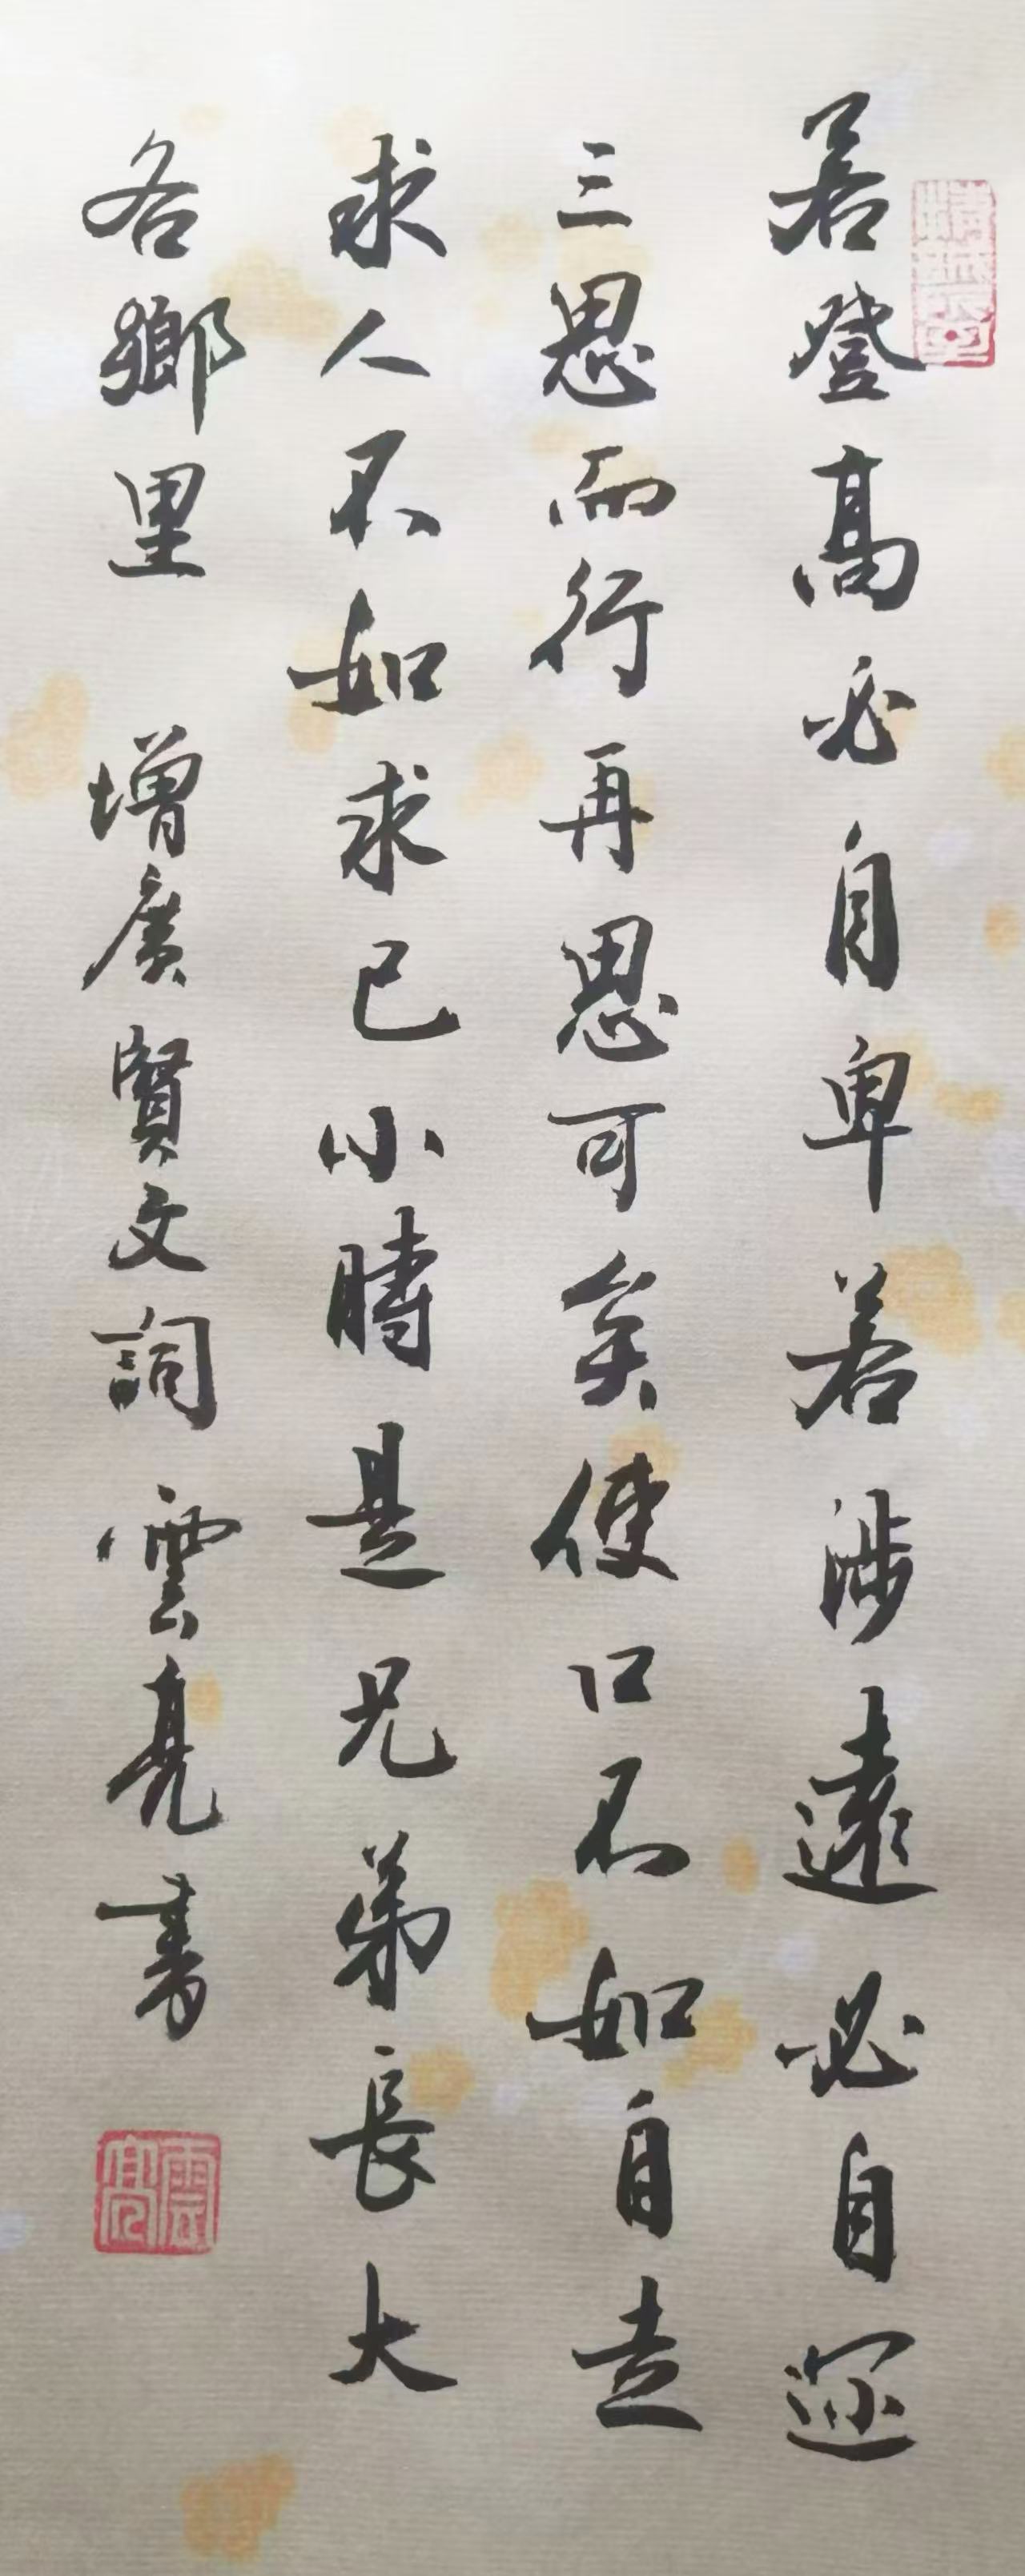 若登高必自卑若涉遠必自迩
三思而行再思可矣使口不如自走
求人不如求己小時是兄弟長大
各鄉里 增廣賢文詞 雲亮書
雲亮